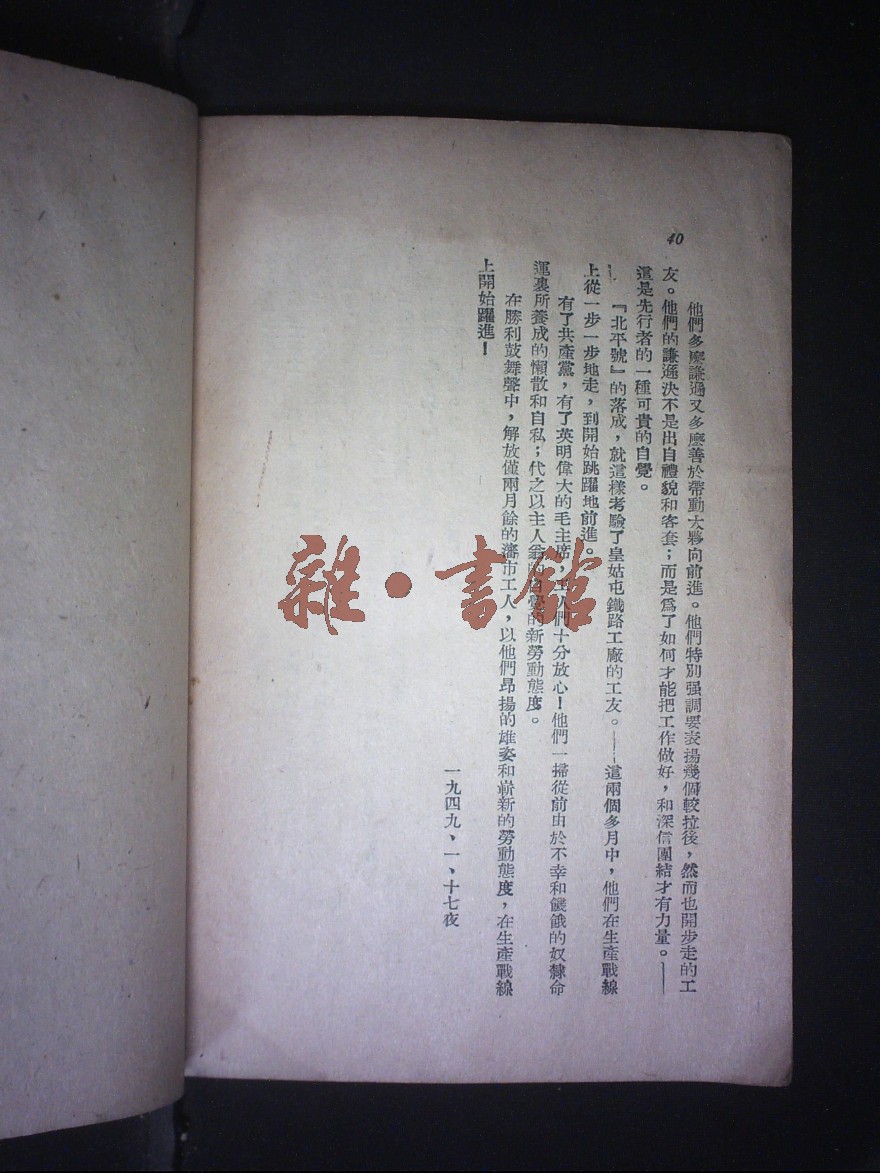 40
他們多麼謙遜又多麼善於帶動大夥向前進。他們特別强調要表揚幾個較拉後，然而也開步走的工
友。他們的謙遜決不是出自禮貌和客套；而是爲了如何才能把工作做好，和深信團結才有力量。——
這是先行者的一種可貴的自覺。
『北平號』的落成，就這樣考驗了皇姑屯鐵路工廠的工友。——這兩個多月中，他們在生產戰線
上從一步一步地走，到開始跳躍地前進。
有了共產黨，有了英明偉大的毛主席，工人們十分放心！他們一掃從前由於不幸和饑餓的奴隸命
運裏所養成的懶散和自私；代之以主人翁的自覺的新勞動態度。
在勝利鼓舞聲中，解放僅兩月餘的瀋市工人，以他們昂揚的雄姿和嶄新的勞動態度，在生產戰線
上開始躍進！
一九四九、一、十七夜
雜·書館